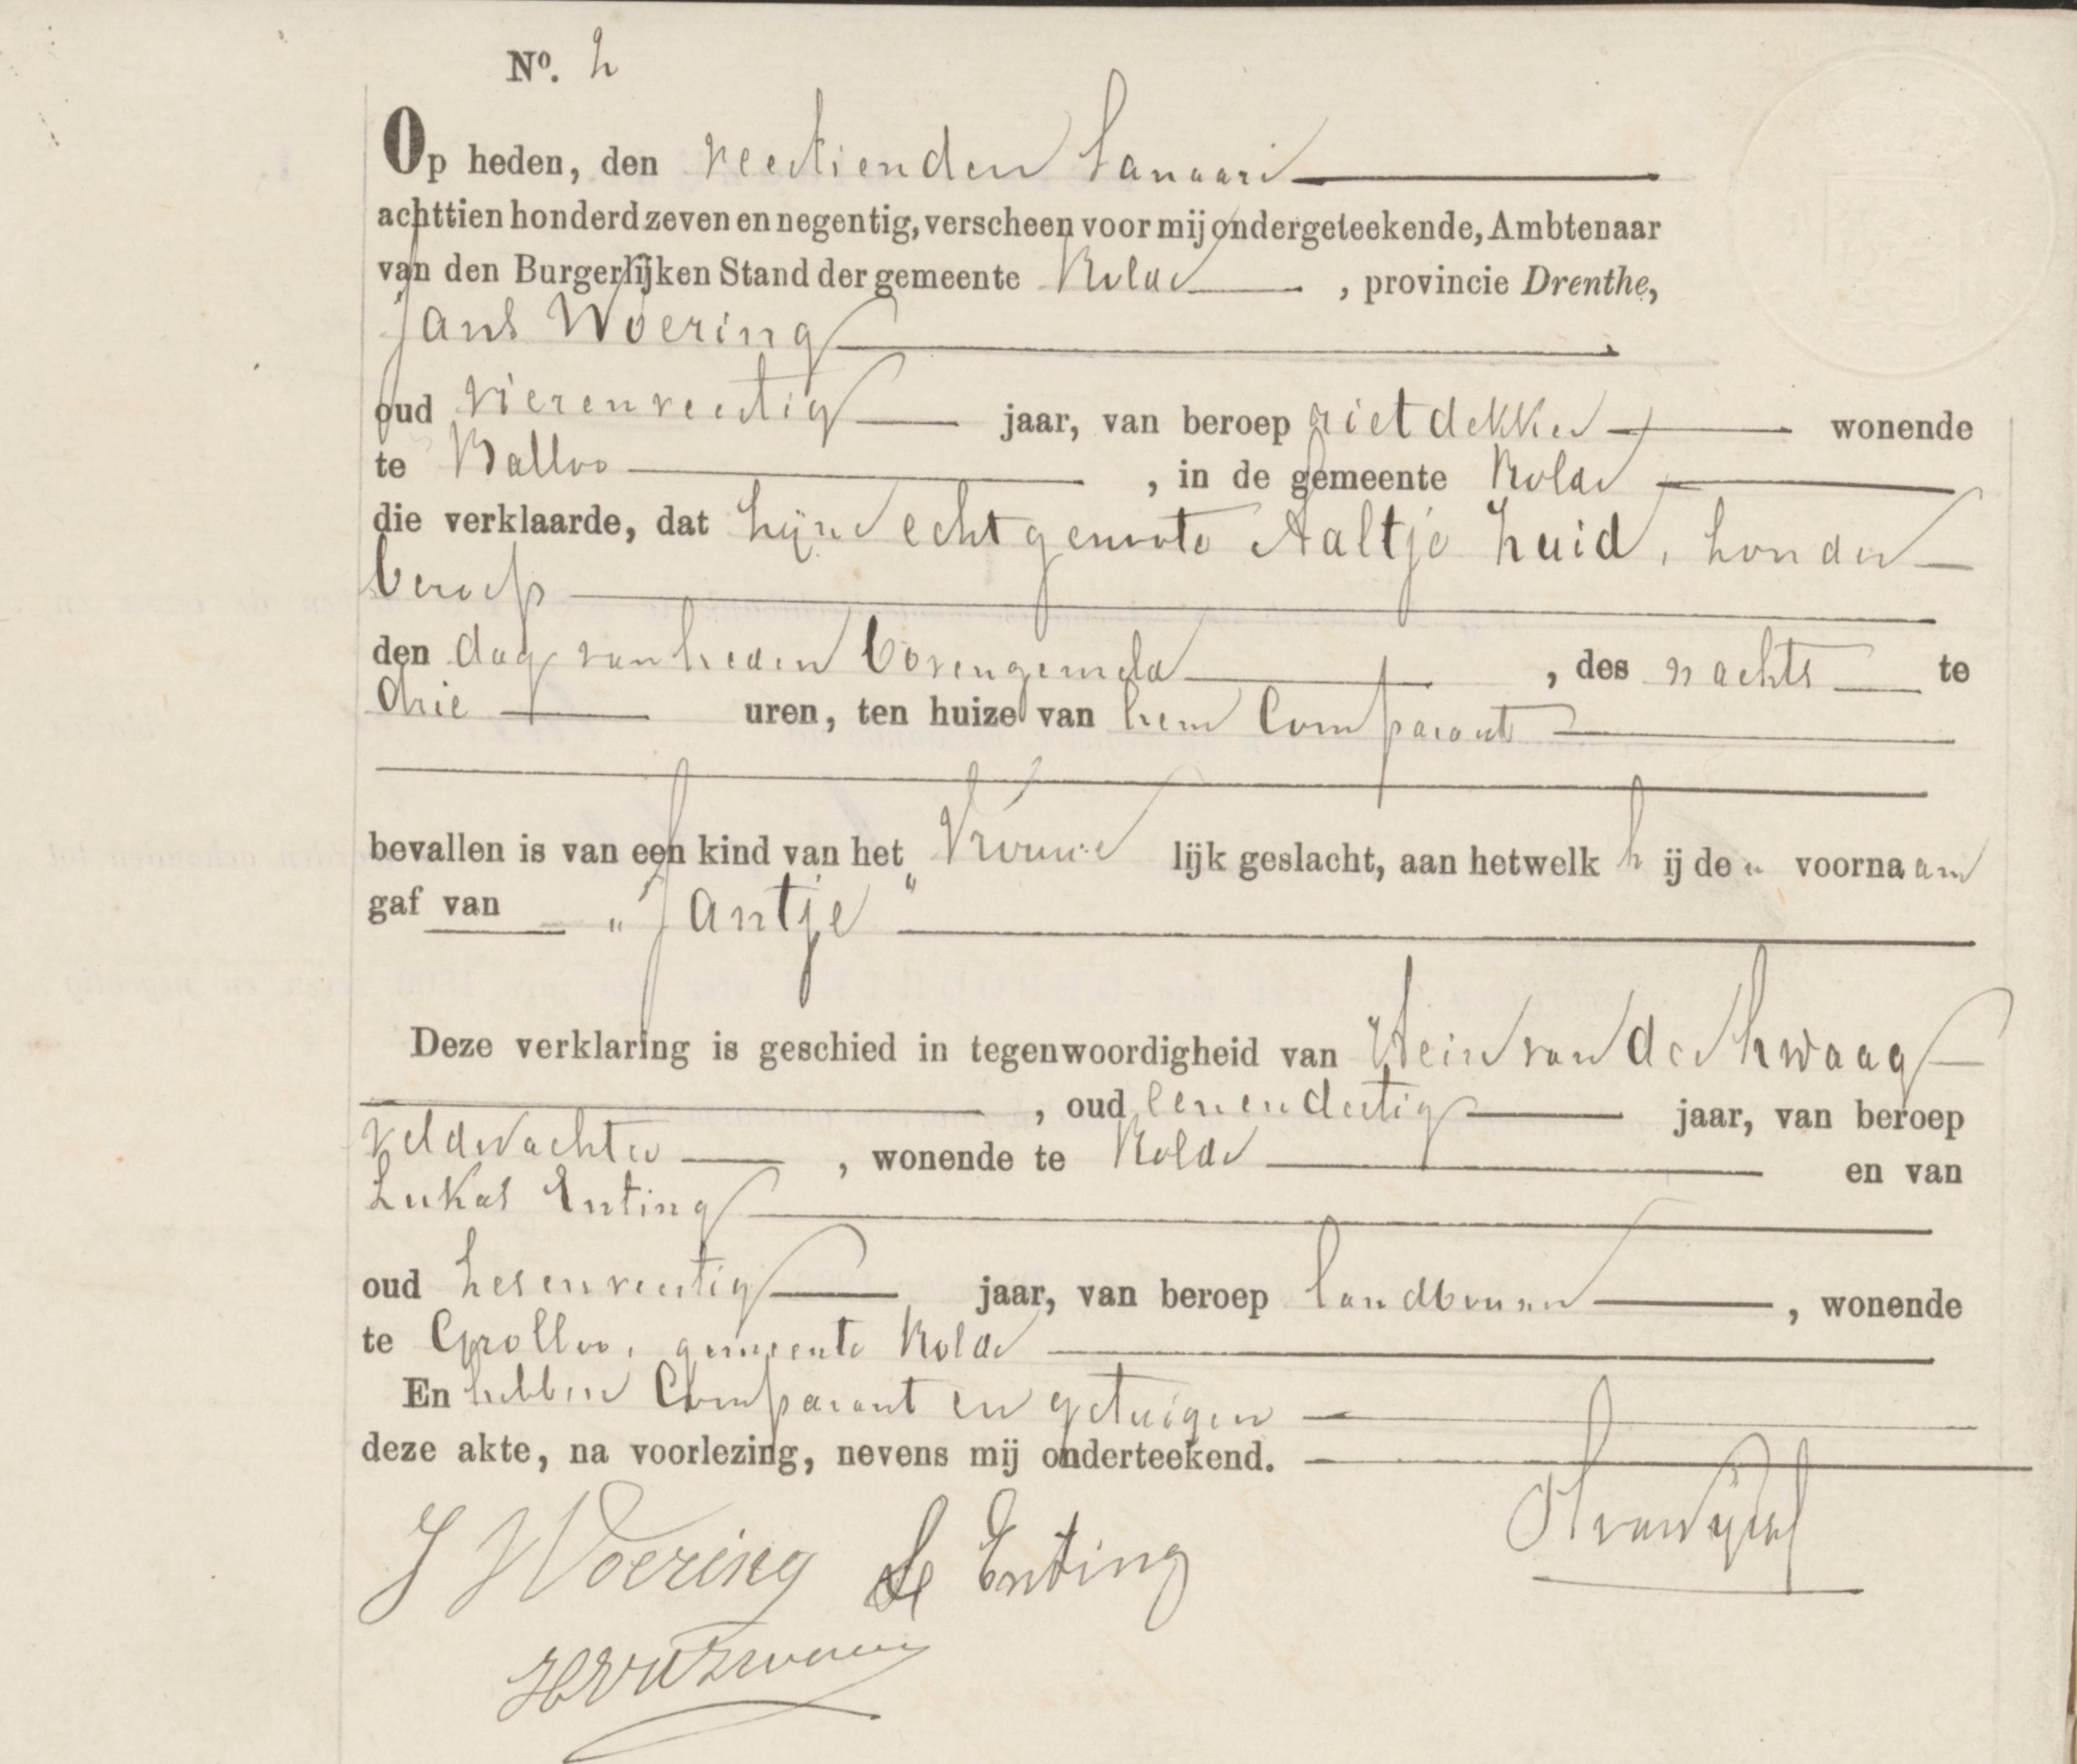 No. 2
Op heden, den veertienden Januari
achttien honderd zeven en negentig, verscheen voor mij ondergeteekende, Ambtenaar
van den Burgerlijken Stand der gemeente Rolde, provincie Drenthe,
Jans Woering
oud vierenveertig jaar, van beroep rietdekker wonende
te Balloo, in de gemeente Rolde
die verklaarde, dat zijne echtgenoote Aaltje Zuid, zonder
beroep
den dag van heden bovengemeld, des nachts te
drie uren, ten huize van hem Comparant
bevallen is van een kind van het Vrouwelijk geslacht, aan hetwelk hij den voornaam
gaf van "Jantje"
Deze verklaring is geschied in tegenwoordigheid van Hein van der Zwaag
, oud eenendertig jaar, van beroep
veldwachter, wonende te Rolde en van
Lukas Enting
oud zesenveertig jaar, van beroep landbouwer, wonende
te Grolloo, gemeente Rolde
En hebben Comparant en getuigen
deze akte, na voorlezing, nevens mij onderteekend.
J Woering L Enting